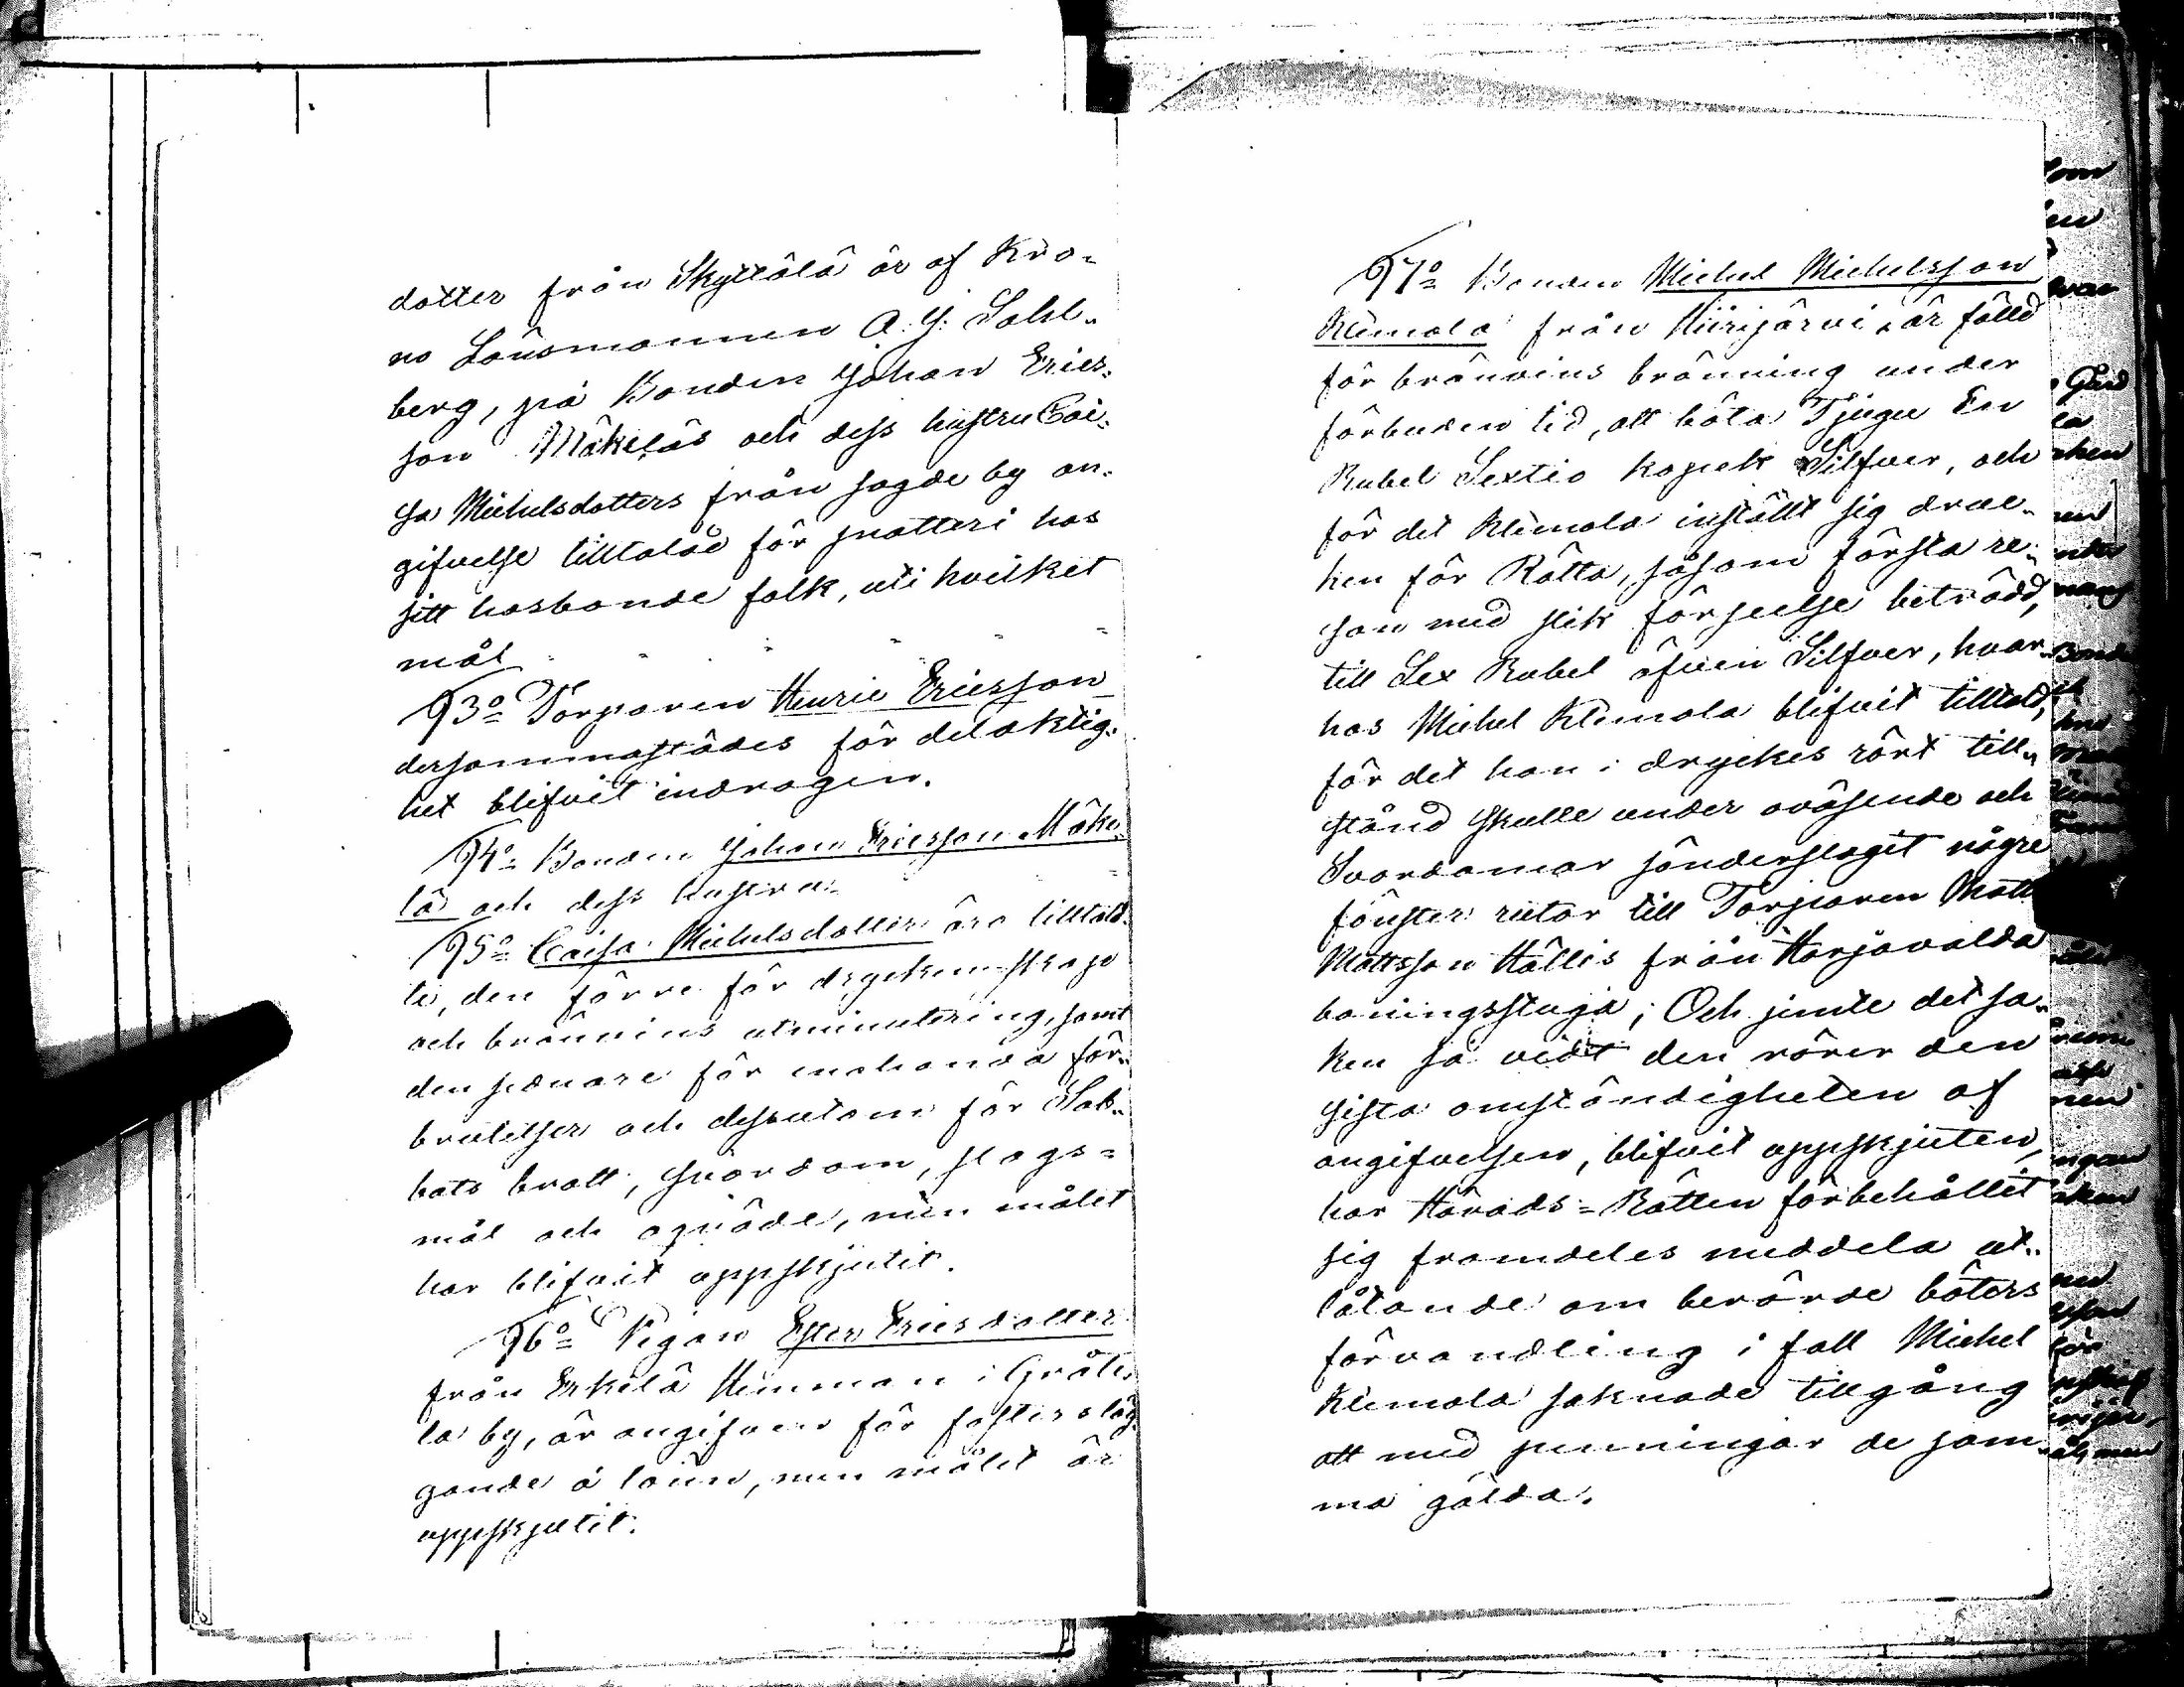 dotter från Skyttälä är af Kro-
no Länsmannen A. J. Sahl-
berg, på Bonden Johan Erics-
son Mäkeläs och dess hustru Cai-
sa Michelsdotters från sagde by an-
gifvelse tilltalad för snatteri hos
sitt hosbonde folk, uti hvilket
mål
93º Torparen Henric Ericsson
dersammastädes för delaktig-
het blifvit indragen.
94º Bonden Johan Ericsson Mäke-
lä och dess hustru
95º Caisa Michelsdotter äro tilltal-
te, den förre för dryckenskap
och brännvins utminutering, samt
den sednare för enahanda för-
brytelser och dessutom för Sab-
bats brott, svordom, slags-
mål och oqväde, men målet
har blifvit uppskjutit.
96º Pigan Ester Ericsdotter
från Erkilä Hemman i
la by, är angifven för fosters läg-
gande å lönn, men målet är
uppskjutit.
97º Bonden Michel Michelsson
Klemola från Hiirijärvi, är fälld
för brännvins bränning under
förbuden tid, att böta Tjugu En
Rubel Sextio kopek Silfver, och
för det Klemola inställt sig druc-
ken för Rätta, såsom första re-
san med slik förseelse beträdd,
till Sex Rubel äfven Silfver, hvar-
hos Michel Klemola blifvit tilltald,
för det han i dryckes rört till-
stånd skulle under oväsende och
Svordomar sönderslagit några
fönster rutor till Torparen Matts
Mattsson Hällis från Harjavalda
boningsstuga; Och jemte det sa-
ken så vidt den rörer den
sista omständigheten af
angifvelsen, blifvit uppskjuten,
har Härads-Rätten förbehållit
sig framdeles meddela ut-
låtande om berörde böters
förvandling i fall Michel
Klemola saknade tillgång
att med penningar de sam-
ma gälda.